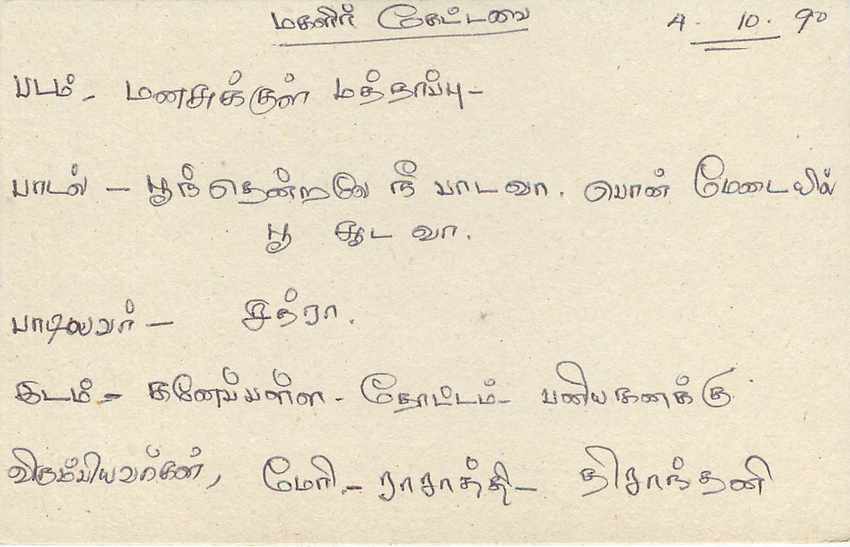 மகளிர் கேட்டவை 4. 10. 90
படம் - மனசுக்குள் மத்தாப்பு -
பாடல் - பூந்தென்றலே நீ பாடவா. பொன் மேடையில்
பூ சூட வா.
பாடியவர் - சித்ரா.
இடம் - தோட்டம் -
விரும்பியவர்கள், மேரி - ராசாத்தி -